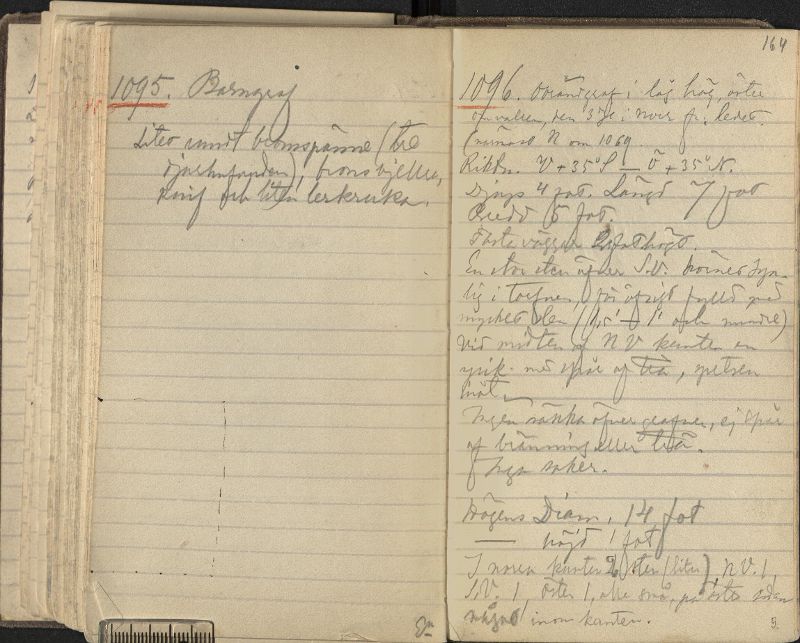 1095. Barngraf
Litet rundt bronsspänne (tre
djurhufvuden), bronsbjellra,
knif och liten lerkruka.
164
1096. Obrändgraf i låg hög, öster
om vallen, den 3je i norr fr. ledet.
närmast N om 1069.
Riktn. V + 35° S — Ö + 35° N.
Djup 4 fot. Längd 7 fot
Bredd 5 fot.
Fasta väggar 2 fot högt.
En stor sten öfver S.V. hörnet syn-
lig i torfven, för öfrigt fylld med
mycket sten (1,5' — 1' och mindre)
Vid midten af NV kanten en
spik med spår af trä, spetsen
inåt.
Ingen sänka öfver grafven, ej spår
af bränning eller trä.
Inga saker.
Högens Diam. 14 fot
— höjd 1 fot
I norra kanten 2 sten (liten), N.V. 1,
S.V. 1, öster 1, alla små, på östra sidan
något inom kanten.